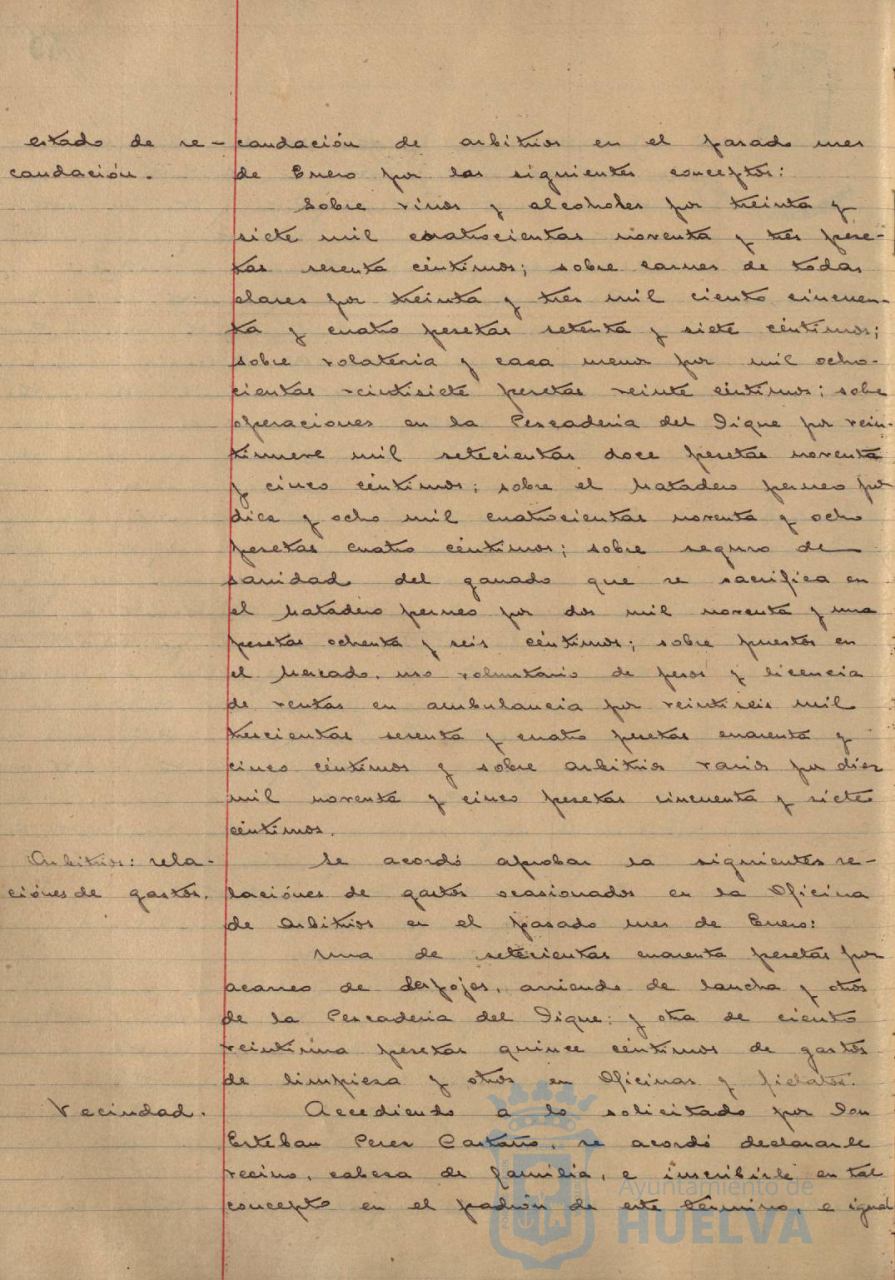 estado de re- caudación de arbitrios en el pasado mes
caudación. de Enero por los siguientes conceptos:
Sobre vinos y alcoholes por treinta y
siete mil cuatrocientas noventa y tres pese-
tas sesenta céntimos; sobre carnes de todas
clases por treinta y tres mil ciento cincuen-
ta y cuatro pesetas setenta y siete céntimos;
sobre volateria y caza menor por mil ocho-
cientas veintisiete pesetas veinte céntimos; sobre
operaciones en la Pescaderia del Dique por vein-
tinueve mil setecientas doce pesetas noventa
y cinco céntimos; sobre el Matadero perneo por
diez y ocho mil cuatrocientas noventa y ocho
pesetas cuatro céntimos; sobre seguro de
sanidad del ganado que se sacrifica en
el Matadero perneo por dos mil noventa y una
pesetas ochenta y seis céntimos; sobre puestos en
el Mercado, uso voluntario de pesos y licencia
de ventas en ambulancia por veintiseis mil
trescientas sesenta y cuatro pesetas cuarenta y
cinco céntimos y sobre arbitrios varios por diez
mil noventa y cinco pesetas cincuenta y siete
céntimos.
Arbitrios: rela- Se acordó aprobar la siguientes re-
ciónes de gastos. laciónes de gastos ocasionados en la Oficina
de Arbitrios en el pasado mes de Enero:
Una de setecientas cuarenta pesetas por
acarreo de despojos, arriendo de lancha y otros
de la Pescaderia del Dique; y otra de ciento
veintiuna pesetas quince céntimos de gastos
de limpieza y otros en Oficinas y fielatos.
Vecindad. Accediendo a lo solicitado por Don
Esteban Perez Castaño, se acordó declararle
vecino, cabeza de familia, e inscribirle en tal
concepto en el padrón de este término, e igual
Ayuntamiento de
HUELVA